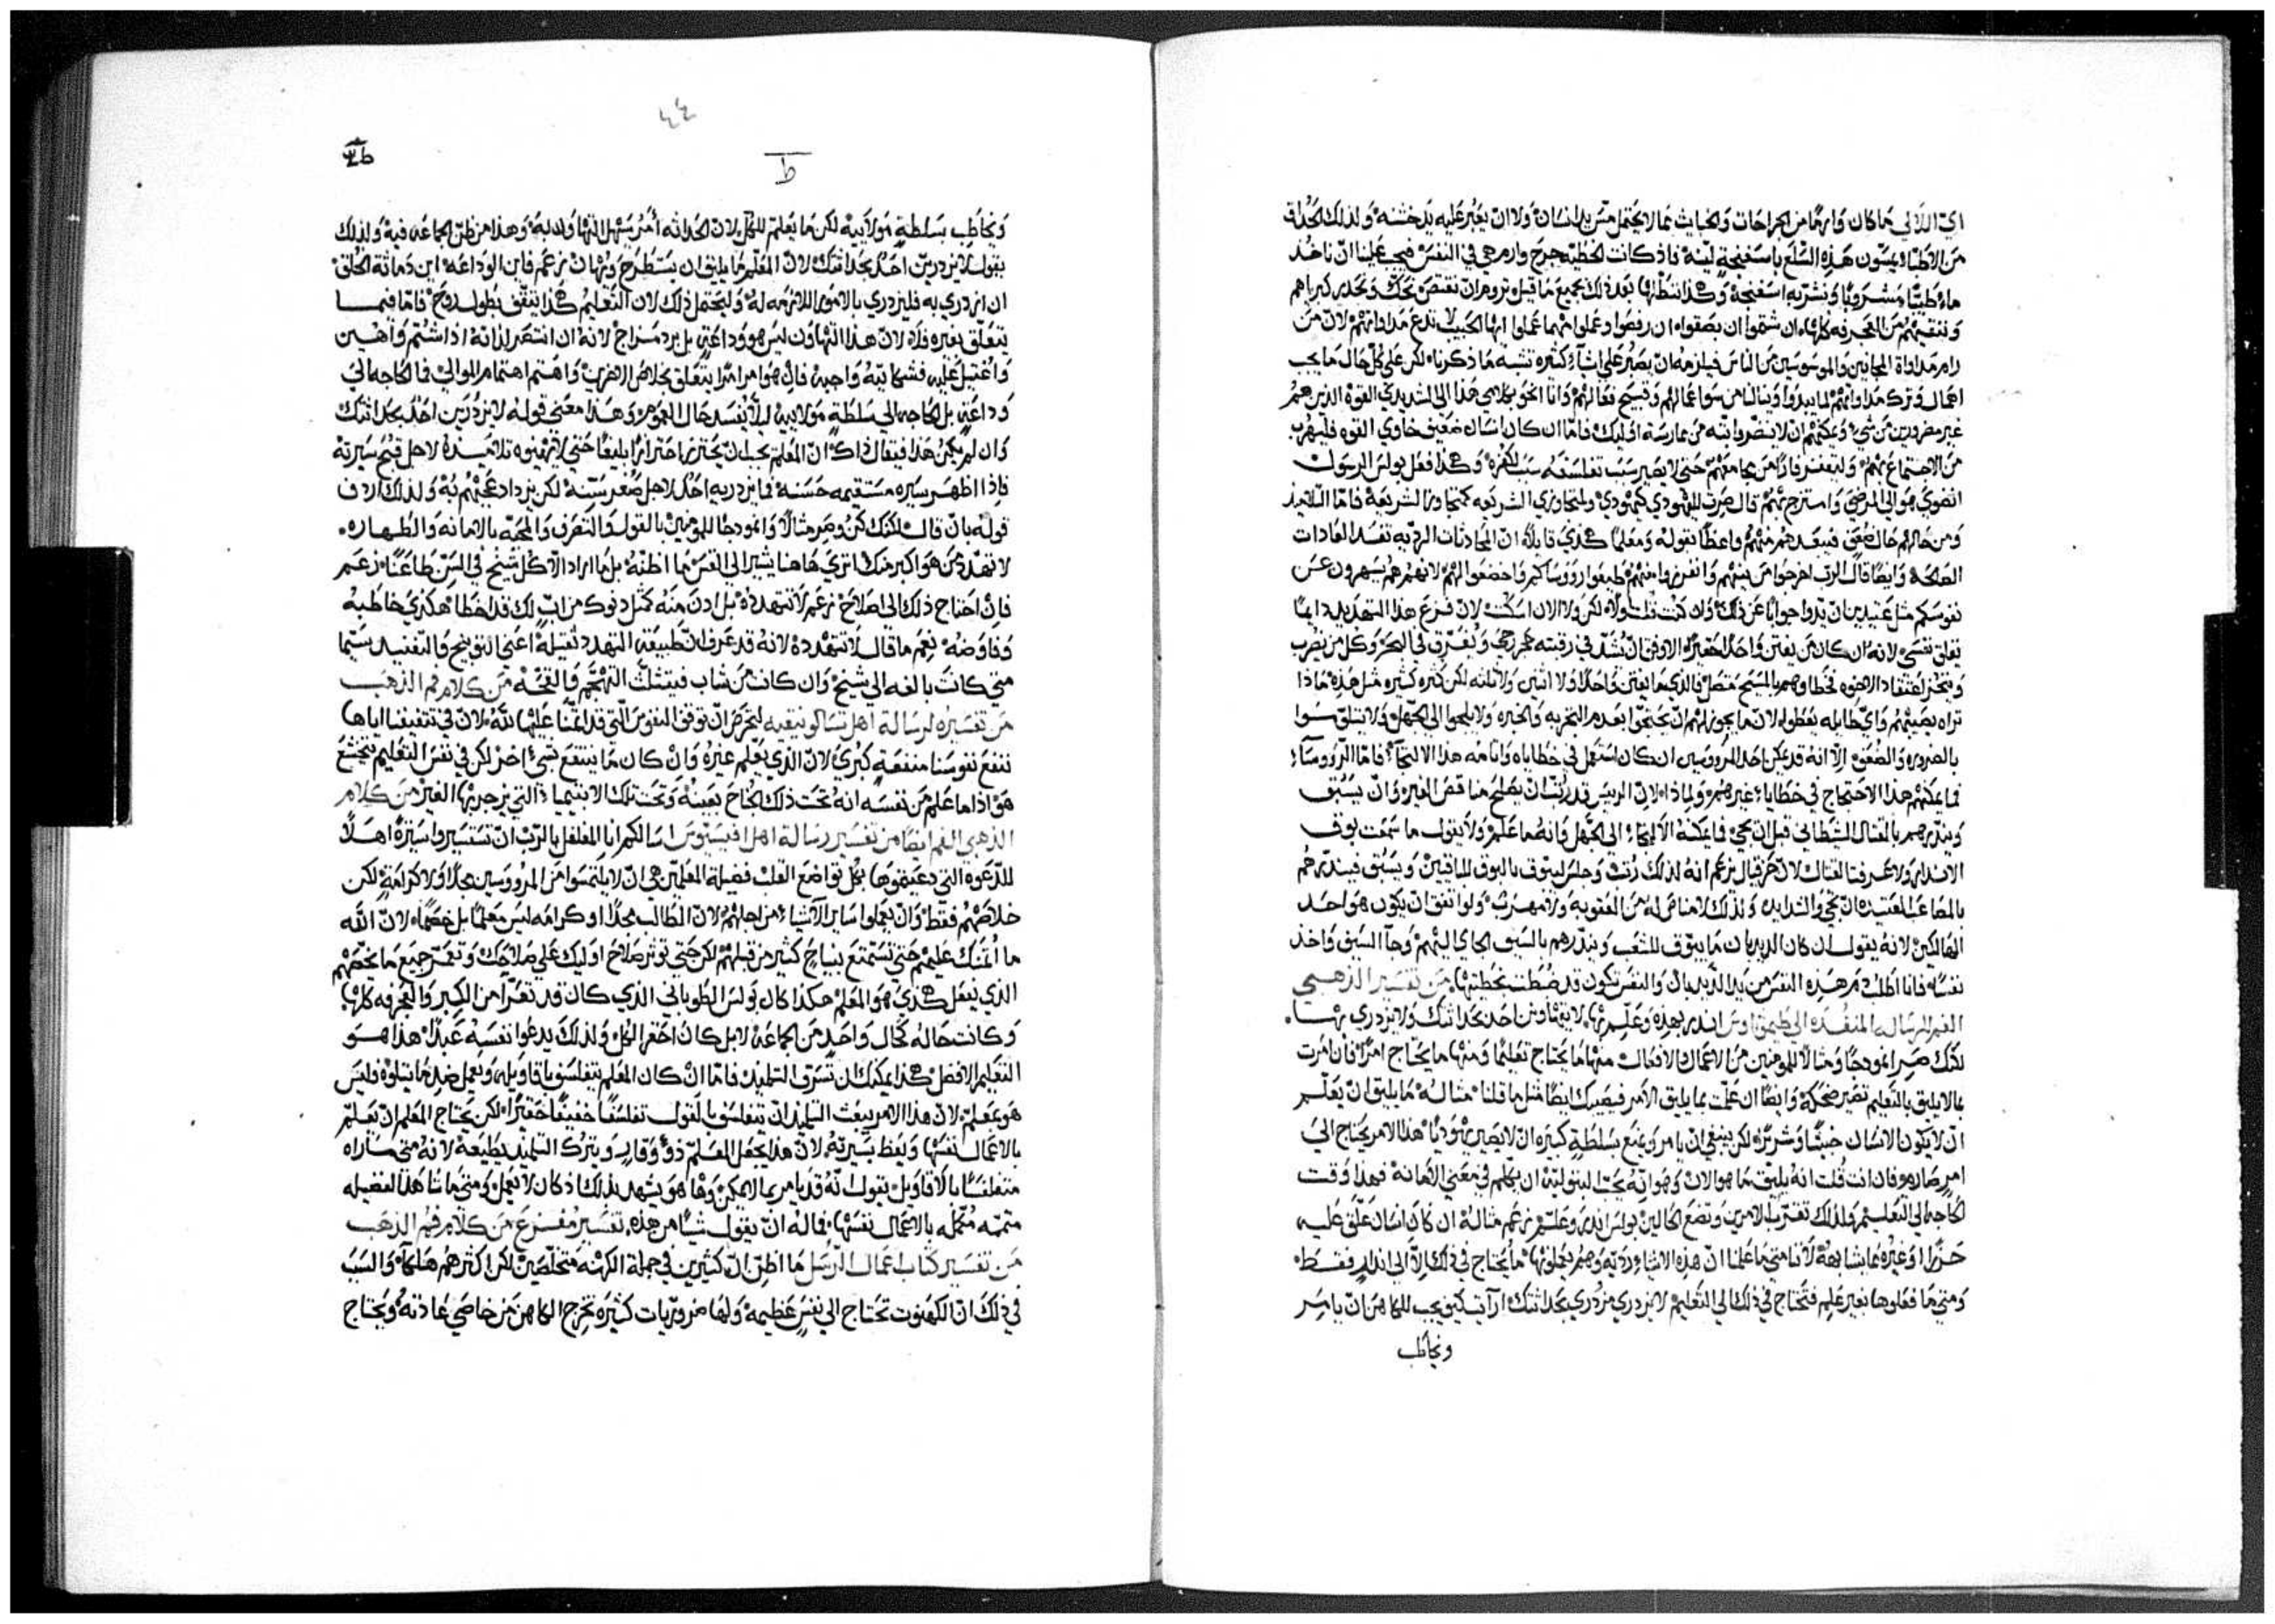 اي اللآلي ما كان وارمًا من الجراحات والخباث مما لا يحتمل مسّ يد انسان ولا ان يغبر عليه يد خشنه ولذلك الحذاق
من الاطبا يمسّون هذه السّلع باسفنجةٍ ليّنة فاذ كانت الخطيّه جرح وارم هي في النفس فيجب علينا انّ ناخذ
ماءً طيبًا مشروبًا ونشربه اسفنجة وهكذا بعد ذلك بجميع ما قيل نروم انّ
وننقيهم من العجرفه كلها ان شتموا ان بصقوا ان رفصوا وعملوا مهما عملوا ايها الحبيب لا تدع مداواتهم لانّ من
رام مداواة المجانين والموسوسين من الناس فيلزمه ان يصبر على اشياءٍ كثيره تشبه ما ذكرناه لكن على كلّ حال ما يجب
اهمال وترك مداواتهم لما يبدوا وينالنا من سوا عمالهم وقبيح فعالهم وانا انحو بكلامي هذا الى الشديدي القوه الذين هم
غير مضرورين من شي ويمكنهم ان لا ينضّروا بتّه من ممارسة اوليك فامّا ان كان انسان ضعيف خاوي القوه فليهرب
من الاجتماع بهم وليقفز فارًا من مجامعهم حتى لا يصير سبب تفلسفه سبب لكفره وهكذا فعل بولس الرسول
انضوى هو الي المرضى وامتزج بهم قال صرت لليهودي كيهودي ولمتجاوزي الشريعه كمتجاوز الشريعة فامّا التلاميذ
ومن حالهم حال ضعف فيبعدهم منهم واعظًا بقوله ومعلمًا هكذي قايلًا انّ المحادثات الرديه تفسد العادات
الصالحة وايضًا قال الرب اخرجوا من بينهم وانفرزوا منهم طيعوا روؤساكم واخضعوا لهم لانهم هم يسهرون عن
نفوسكم مثل عتيدين ان يدوا جوابًا عن ذلك وان كنت قلت ولًا لكن ولا الان اسكت لانّ فزع هذا التهديد دايمًا
يقلق نفسي لانه ان كان من يفتن واحدًا حقيرًا الاوفق انّ تشدّ في رقبته حجر رحي ويغرّق في البحر وكل من يضرب
اعتقاد الاخوه فخطاوهم بالمسيح متصل فالذي ما يفتن واحدًا ولا اثنين ولا ثلثه لكن كثره كثيره مثل هذه ماذا
تراه يصيبهم واي طايله يعطوا لانّ ما يجوز لهم انّ يحتجّوا بعدم التجربه والخبره ولا يلجوا الى الجهل ولا سوا
بالضروره والضعف الّا انه قد يمكن احد المروّوسين ان كان استعمل في خطاياه واثامه هذا الالتجآء فامّا الرّوؤسآء
فما يمكنهم هذا الاحتجاج في خطاياء غيرهم ولماذا لانّ الرييس قد رُتّب ان يصلح مناقص الغير وانّ يسبق
وينذرهم بالقتال الشيطاني قبل ان يجي فما يمكنه الالتجاء الى الجهل وانه ما علم ولا يقول ما سمعت بوق
الانذار ولا عرفنا القتال لانّ حزقيال زعم انه لذلك رُتب وجلس ليبّوق بالبوق للباقين ويسبق فينذرهم
بالمصاعب العتيده انّ تجي والشدايد ولذلك لا مناص له من العقوبة ولا مهرب ولو اتفق ان يكون هو احد
الهالكين لانه يقول ان كان الديدبان ما يبّوق للشعب وينذرهم بالسيف الجاي اليهم وجآ السيف واخذ
نفسًا فانا اطلب دم هذه النفس من يد الديدبان والنفس تكون قد ضُبطت بخطيتها من تفسير الذهبي
الفم للرساله المنفذه الى طيمثاوس انذر بهذه وعلّم بها لا يتهاون احد بحداثتك ولا يزدري بها
لكنك صِر انموذجًا ومثالًا للمومنين من الاعمال والافعال منها ما يحتاج تعليمًا ومنها ما يحتاج امرًا فان امرت
بما لا يليق بالتعليم تصير ضحكة وايضًا ان علمت بما يليق الامر فيصيبك ايضًا مثل ما قلنا مثاله ما يليق انّ يعلّم
انّ لا يكون الانسان خبيثًا وشريرًا لكن ينبغي انّ يامر ويمنع بسلطةٍ كبيره انّ لا يصير يهوديًا هذا الامر يحتاج الى
امرٍ صارم فان انت قلت انه يليق ما هو الان وهو انّه تحبّ البتوليّة ان يتكلّم في معنى الامانة فهذا وقت
الحاجه الى التعليم ولذلك تقترب الامرين وتضع الحالين بولس انذر وعلّم زعم مثاله ان كان انسان علّق عليه
حرزًا او غيره مما شابهه لاننا متى ما علمنا انّ هذه الاشياء رديّه وهم يعملونها ما يحتاج في ذلك الّا الى انذارٍ فقط
ومتى ما فعلوها بغير علم فتحتاج في ذلك الى التعليم لا يزدري مزدري بحداثتك ارايت كيف يجب للكاهن انّ يامر
ويخاطب
٤٤
ط
ويخاطب بسلطةٍ مولابيه لكن ما يعلم للكل لان الحداثه امرٌ يسهل التهاون به وهذا من ظنّ الجماعه فيه ولذلك
بقول لا يزدرينّ احدٌ بحداثتك لانّ المعلّم ما يليق ان يستطرح ويُهان زعم فاين الوداعه اين دماثة الخلق
ان ازدري به فليزدري بالامور اللازمه له وليحتمل ذلك لان التعليم هكذا يتقّف بطول الروح فامّا فيما
يتعلّق بغيره فلا لانّ هذا التهاون ليس هو وداعة بل برد مزاج لانه ان انتصر لذاته اذا شُتم واُهين
واُغتيل عليه فشكايته واجبه فان هو امر امرًا يتعلق بخلاص الاخرين واهتم اهتمام الموالي فما الحاجه الى
وداعةٍ بل الحاجه الى سلطةٍ مولابيه ليلّا يفسد حال العموم وهذا معنى قوله لا يزدرين احدٌ بحداثتك
وان لم يكن هذا فيقال ذاك انّ المعلم يجب ان يحترز احترازًا بليغًا حتى لا يهينوه تلاميذه لاجل قبح سيرته
فاذا اظهر سيره مستقيمه حسنه فما يزدريه احد لاجل صغر سنّه لكن يزداد عجبهم به ولذلك اردف
قوله بان قال لكنك كن وصر مثالًا وانموذجًا للمومنين بالقول والتصرف والمحبّه بالامانه والطهاره
لا تهدّد من هو اكبر منك اترى هاهنا يشير الى القس ما اظنّه بل ما اراد الّا كل شيخ في السّن طاعنًا زعم
فان احتاج ذلك الى اصلاح زعم لا تتهدده بل ادن منه كمثل دنوك من ابٍ لك قد اخطا هكذي خاطبه
وفاوضه نِعم ما قال لا تتهدده لانه قد عرف انّ طبيعة التهدد ثقيلة اعني التوبيخ والتفنيد سيّما
متى كانت بالغه الى شيخ وان كانت من شاب فيتثلّث التهجّم والقحّه من كلام فم الذهب
من تفسيره لرسالة اهل تسالونيقيه لنحرص ان نوقف النفوس الّتي قد ائتمنّا عليها لله لانّ في تثقيفنا اياها
ننفع نفوسنا منفعةٍ كبرى لانّ الذي يعلّم غيره وانْ كان ما ينتفع بشيٍ اخر لكن في نفس التعليم يتخشّع
هو اذا ما علم من نفسه انه تحت ذلك الجناح بعينه وتحت تلك الابتيميا التي يزجر بها الغير من كلام
الذهبي الفم ايضًا من تفسير رسالة اهل افسس اسالكم انا المغلغل بالرّب انّ تستسيروا سيرةً اهلًا
للدّعوه التي دعيتموها بكل تواضع القلب فضيلة المعلّمين هي انّ لا يلتمسوا من المروّوسين مجدًا ولا كرامةٍ لكن
خلاصهم فقط وان يعملوا ساير الاشياء من اجلهم لانّ الطالب مجدًا او كرامه ليس معلّمًا بل خصمًا لانّ الله
ما ائتمنك عليهم حتى تستمتع بنياحٍ كثير من قبلهم لكن حتى توثر صلاح اوليك على صلاحك وتعمّر جميع ما يخصّهم
الذي يفعل هكذي هو المعلم هكذا كان بولس الطوباني الذي كان قد تعرّا من الكبر والعجرفه كلها
وكانت حاله كحال واحدٍ من الجماعة لا بل كان احقر الكل ولذلك يدعوا نفسه عبدًا هذا هو
التعليم الافضل هكذا يمكنك ان تسرق التلميذ فامّا انْ كان المعلّم يتفلسف باقاويله ويعمل ضد ما يتلوه فليس
هو بمعلّم لانّ هذا الامر يبعث التلميذ انّ يتفلسف بالقول تفلسُفًا خفيفًا حقيرًا لكن يحتاج المعلم انّ يعلّم
بالاعمال نفسها ويعظ بسيرته لانّ هذا يجعل المعلّم ذو وقارٍ ويترك التلميذ يطيعه لانه متى ما راه
متفلسفًا بالاقاويل يقول انّه قد يامر بما لا يمكن وها هو يشهد بذلك اذ كان لا يعمل ومتى ما شاهد الفضيله
متممه مُكمّله بالاعمال نفسها فما له انّ يقول شيًا من هذه تفسير مفزع من كلام فم الذهب
من تفسير كتاب اعمال الرّسل ما اظنّ انّ كثيرين في جملة الكهنه متخلّصين لكن اكثرهم هلكآء والسبب
في ذلك انّ الكهنوت تحتاج الى نفس عظيمه ولها ضروريّات كثيره تخرج الكاهن من خاصّي عادته ويحتاج